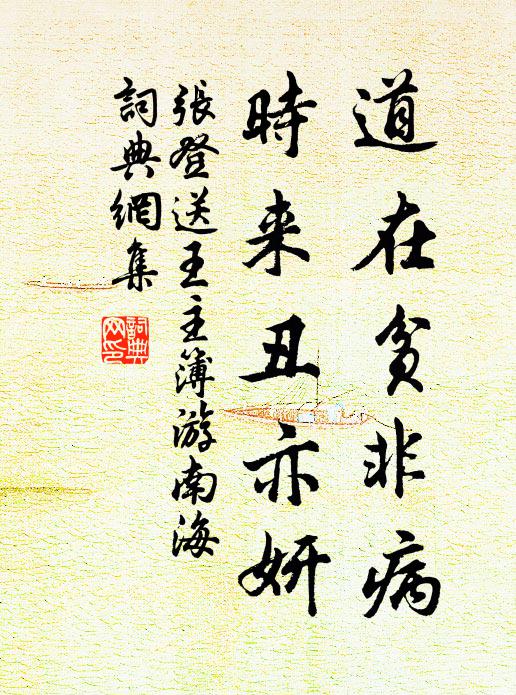 道在貧非病
時来丑亦妍
張登送王主簿游南海
詞典網集
詞典
网印